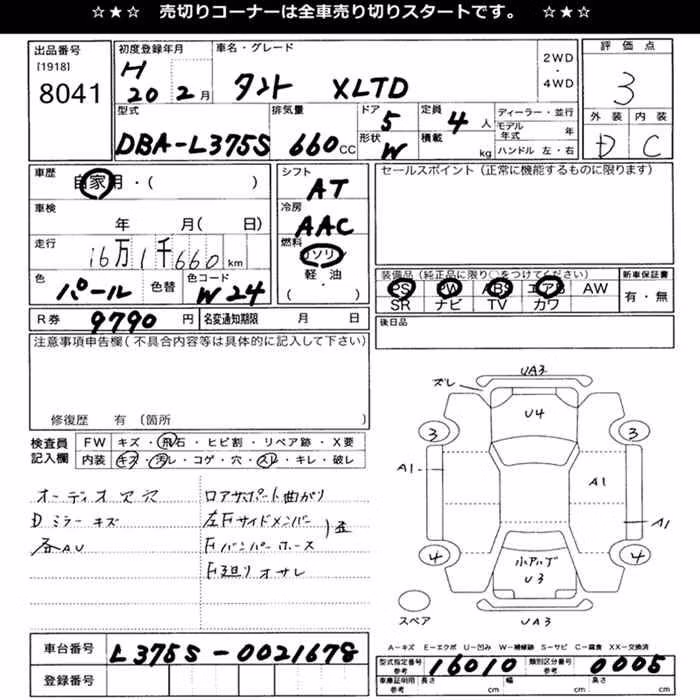 ☆★☆ 売切りコーナーは全車売り切りスタートです。 ☆★☆
出品番号
[1918]
8041
初度登録年月
H
20 2月
車名・グレード
タント XLTD
2WD
・
4WD
評価点
3
外装 内装
D C
型式
DBA-L375S
排気量
660 CC
ドア 5
形状 W
定員 4 人
積載 kg
ディーラー・並行
モデル年式 年
ハンドル 左・右
車歴
自家用・( )
車検
年 月( 日)
走行
16万1千660km
色
パール
色替
色コード
W24
シフト
AT
冷房
AAC
燃料
ガソリン
軽・油
( ・ )
セールスポイント(正常に機能するものに限ります)
装備品(純正品に限り○をつけてください)
PS PW ABS エアB AW
SR ナビ TV カワ
新車保証書
有・無
R券 9790 円
名変通知期限 月 日
後日品
注意事項申告欄(不具合内容等は具体的に記入して下さい)
修復歴 有 (箇所 )
検査員
記入欄
FW キズ・飛石・ヒビ割・リペア跡・X要
内装 キズ・汚レ・コゲ・穴・スレ・キレ・破レ
オーディオ穴
Dミラーキズ
各AU
ロアサポート曲がり
左Fサイドメンバー
Fバンパーホース
)歪
F廻りオサレ
UA3
ズレ
U4
3
3
A1
A1
A1
4
4
小アルプ
U3
UA3
スペア
A-キズ E-エクボ U-凹み W-補修跡 S-サビ C-腐食 XX-交換済
車台番号 L375S-0021678
登録番号
型式指定番号
参考
16010
類別区分番号
参考
0005
車庫証明用
参考
長さ cm 幅 cm 高さ cm